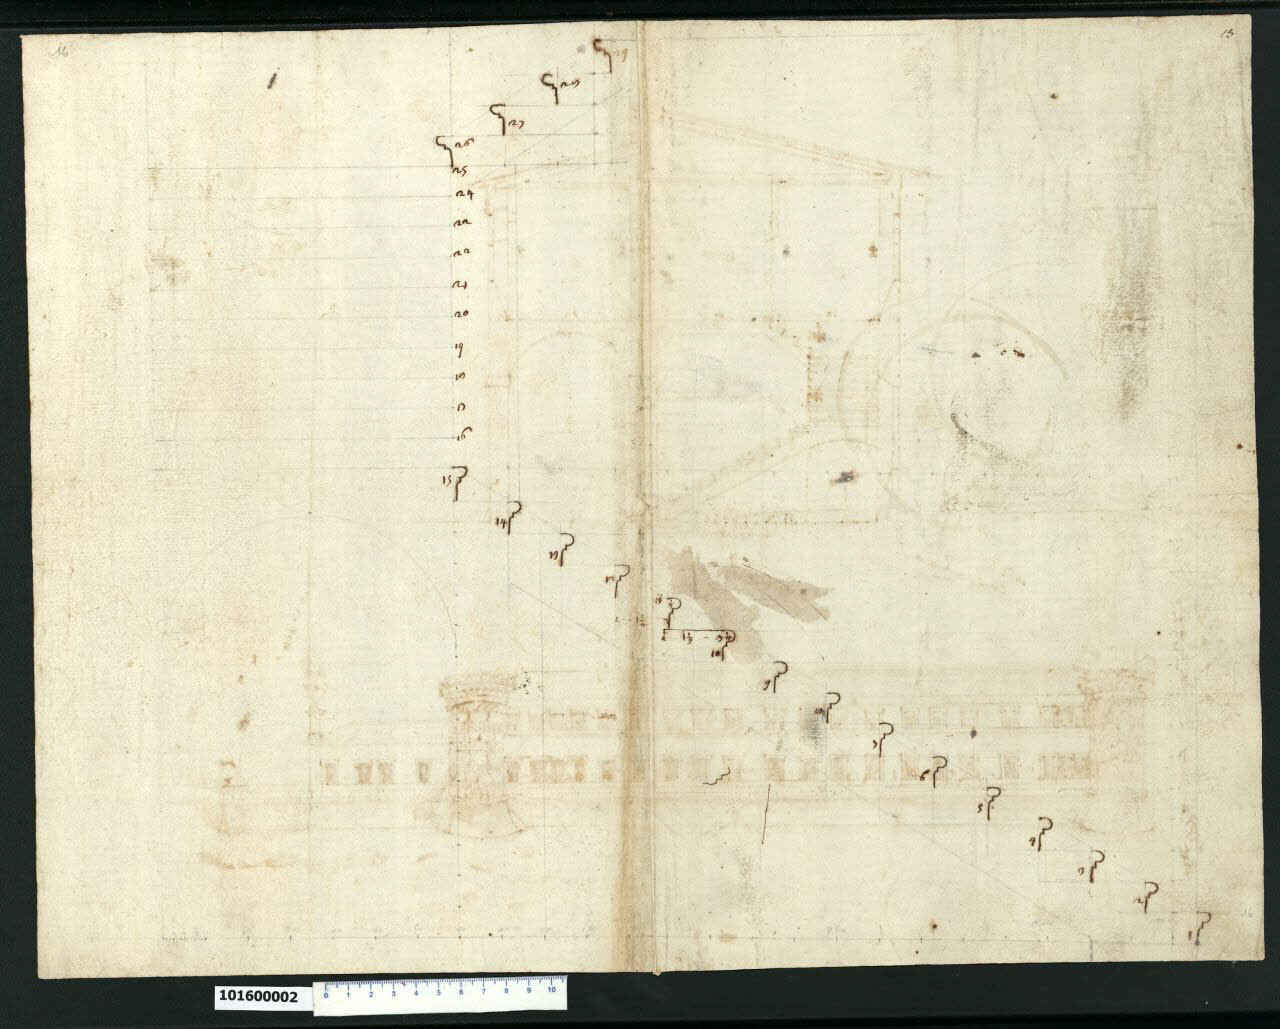 16
15
29
28
27
26
25
24
23
22
21
20
19
18
17
16
15
14
13
12
11
10
9
8
7
6
5
4
3
2
1
16
101600002
0 1 2 3 4 5 6 7 8 9 10